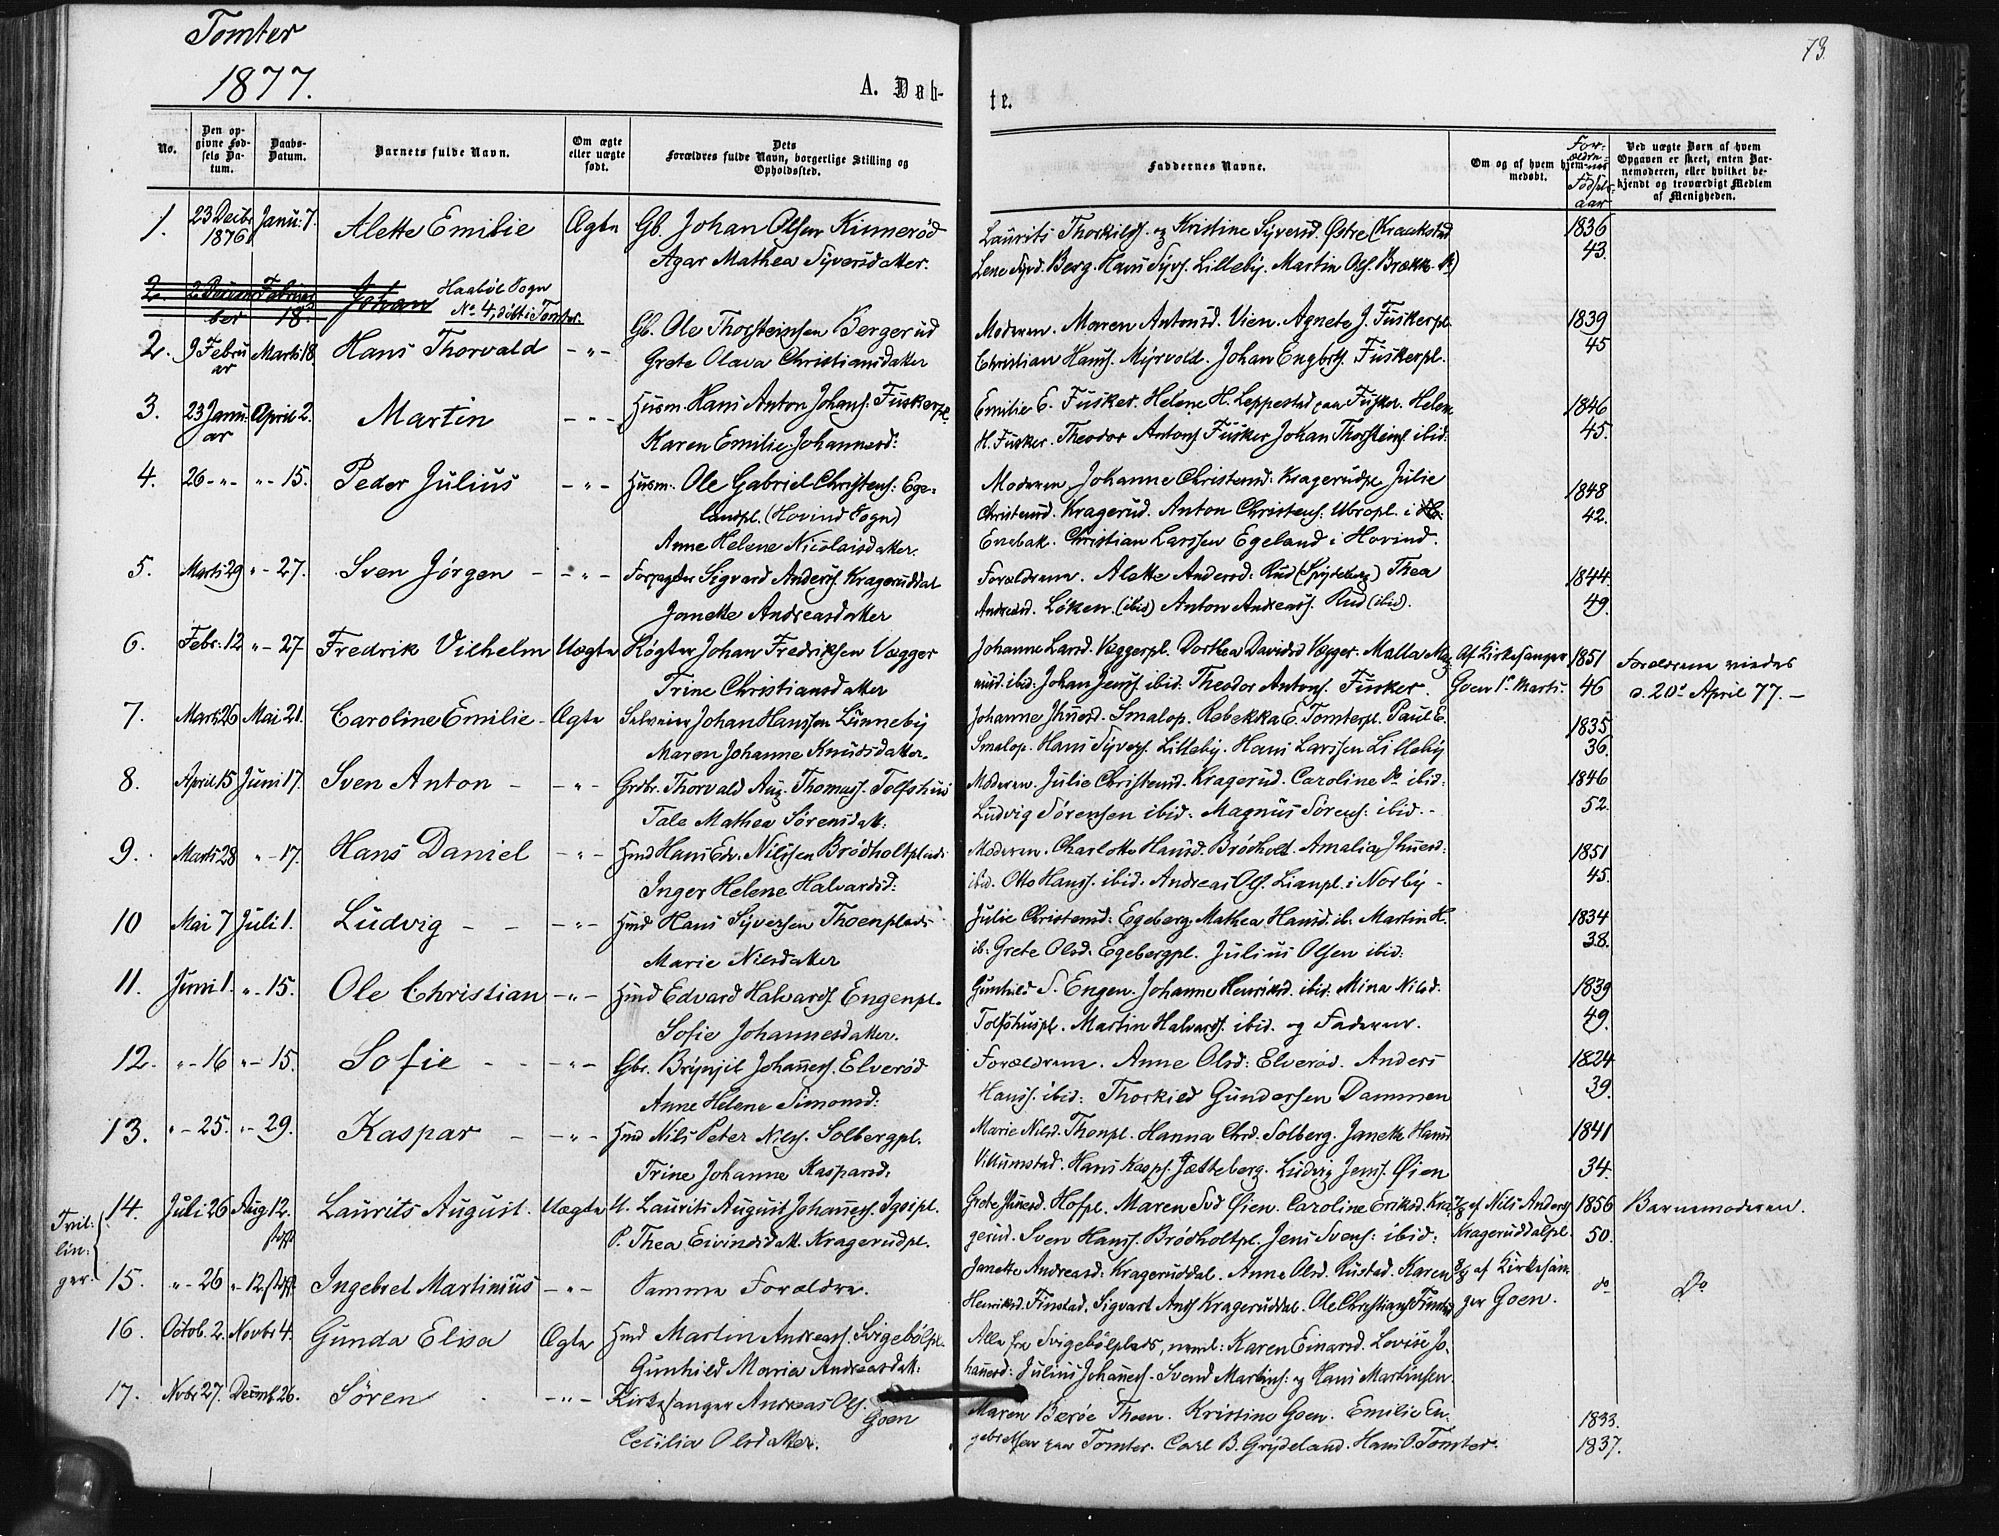 Tomter
1877.
A. Døb-
te.
73.
No.
Den op-
givne Fød-
sels Da-
tum.
Daabs-
Datum.
Barnets fulde Navn.
Om ægte
eller uægte
født.
Dets
Forældres fulde Navn, borgerlige Stilling og
Opholdssted.
Faddernes Navne.
Om og af hvem hjem-
medøbt.
For-
ældre-
nes
Fødsels-
aar
Ved uægte Børn af hvem
Opgaven er skeet, enten Bar-
nemoderen, eller hvilket be-
kjendt og troværdigt Medlem
af Menigheden.
1. 23 Decbr 1876 Janu: 7. Alette Emilie Ægte Gb. Johan Olsen Kinnerød
Agar Mathea Syversdatter.
Laurits Thorkilds. og Kristine Syversd. Østre (Kraakstad
Lene Syvd. Berg. Hans Syvs. Lilleby. Martin Ols. Brække
1836
43.
2. 2 Decem ber Februar 18. Johan Haabøl Sogn
No 4, døbt i Tomter.
2. 9 Febru ar Marts 18. Hans Thorvald -"- Gb. Ole Thorsteinsen Bergerud
Grete Olava Christiansdatter
Moderen. Maren Antonsd. Vien. Agnete J. Fuskerpl.
Christian Hanss. Myrvold. Johan Engbrts. Fuskerpl.
1839
45
3. 23 Janu: ar April 2. Martin -"- Husm. Hans Anton Johans. Fuskerpl.
Karen Emilie Johannesd:
Emilie E. Fusker. Helene H. Leppestad paa Fusker. Helene
H. Fusker. Theodor Antons Fusker Johan Thorsteins. ibid:
1846
45.
4. 26 -"- "- 15. Peder Julius -"- Husm: Ole Gabriel Christens: Ege-
landpl. (Hovind Sogn)
Anne Helene Nicolaisdatter.
Moderen Johanne Christensd: Kragerudpl Julie
Christensd. Kragerud. Anton Christens. Ubropl. i
Enebak. Christian Larssen Egeland i Hovind.
1848
42.
5. Marts 29 "- 27. Sven Jørgen -"- Forpagter Sigvard Anderss. Krageruddal
Janette Andreasdatter
Forældrene. Alette Andersd: Rud (Spydeberg) Thea
Andreasd. Løken. (ibid) Anton Andreass. Rud (ibid).
1844.
49.
6. Febr: 12 "- 27 Fredrik Vilhelm Uægte Røgter Johan Fredriksen Vægger
Trine Christiansdatter
Johanne Larsd. Væggerpl. Dorthea Davidsd Vægger. Malla Mag-
nusd. ibid: Johan Jenss. ibid. Theodor Antons. Fusker.
Af Kirkesanger
Goen 1e Marts.
1851
46
Forældrene viedes
d. 20e April 77. -
7. Marts 26 Mai 21. Caroline Emilie - Ægte Selveier Johan Hanssen Lunneby
Maren Johanne Knudsdatter.
Johanne Jhnesd. Smalop. Rebekka E. Tomterpl. Paul E.
Smalop. Hans Syvers. Lilleby. Hans Larssen Lilleby
1835
36.
8. April 15 Juni 17. Sven Anton - -"- Grdbr. Thorvald Aug. Thomass. Tolfshus
Tale Mathea Sørensdatt:
Moderen. Julie Christensd. Kragerud. Caroline do ibid:
Ludvig Sørensen ibid: Magnus Sørens: ibid. -
1846
52.
9. Marts 28 "- 17. Hans Daniel -"- Hmd Hans Edv. Nilssen Brødholtplads
Inger Helene Halvardsd:
Moderen. Charlotte Hansd. Brødholt. Amalia Jhnesd:
ibid. Otto Hanss. ibid. Andreas Ols. Lianpl. i Norby -
1851
45.
10 Mai 7 Juli 1. Ludvig - - -"- Hmd Hans Syversen Thoenplads
Marie Nilsdatter
Julie Christensd: Egeberg Mathea Hansd. ib. Martin H.
ib: Grete Olsd. Egebergpl. Julius Olsen ibid:
1834
38.
11. Juni 1. "- 15. Ole Christian -"- Hmd Edvard Halvards. Engenpl.
Sofie Johannesdatter.
Gunhild S. Engen. Johanne Henriksd. ibid: Mina Nilsd.
Tolfshuspl. Martin Halvards. ibid. og Faderen.
1839
49.
12. "- 16 "- 15. Sofie - - -"- Gbr. Brynjil Johaness. Elverød
Anne Helene Simonsd:
Forældrene. Anne Olsd: Elverød. Anders
Hanss. ibid: Thorkild Gundersen Dammen
1824
39.
13. "- 25. "- 29. Kaspar - -"- Hmd Nils Peter Nilss. Solbergpl.
Trine Johanne Kaspersd:
Marie Nilsd. Thonpl. Hanna Chrd. Solberg. Janette Hans
Villumstad. Hans Kasps. Jætteberg. Ludvig Jenss. Øien
1841
34.
Tvil-
lin-
ger.
14. Juli 26 Aug 12. Laurits August. Uægte U. Laurits August Johaness. Igsipl.
P. Thea Eivindsdatt. Kragerudpl.
Grete Jhnesd. Hofpl. Maren Svd Øien. Caroline Eriksd. Kra-
gerud. Sven Hanss. Brødholtpl. Jens Svens: ibid:
af Nils Anders
Krageruddalpl.
1856
50.
Barnemoderen.
15. "- 26 "- 12. Ingebret Martinius -"- Samme Forældre.
Janette Andreasd: Krageruddal. Anne Olsd. Rustad. Karen
Henriksd. Finstad. Sigvart Ands Krageruddal. Ole Christians Finstad
af Kirkesan-
ger Goen.
do
Do
16. Octob. 2. Novbr 4. Gunda Elisa Ægte Hmd Martin Andreass. Svigebølpl.
Gunhild Maria Andreasdatt:
Alle fra Svigebølplads, neml: Karen Einarsd. Lovise Jo-
hannesd: Julius Johaness. Svend Martins: og Hans Martinsen.
17. Novbr 27. Decmb. 26. Søren -"- Kirkesanger Andreas Ols.
Goen
Cecilia Olsdatter.
Maren Bærøe Thoen. Kristine Goen. Emilie En-
gebretsen paa Tomter. Carl B. Grydeland. Hans O. Tomter.
1833.
1837.